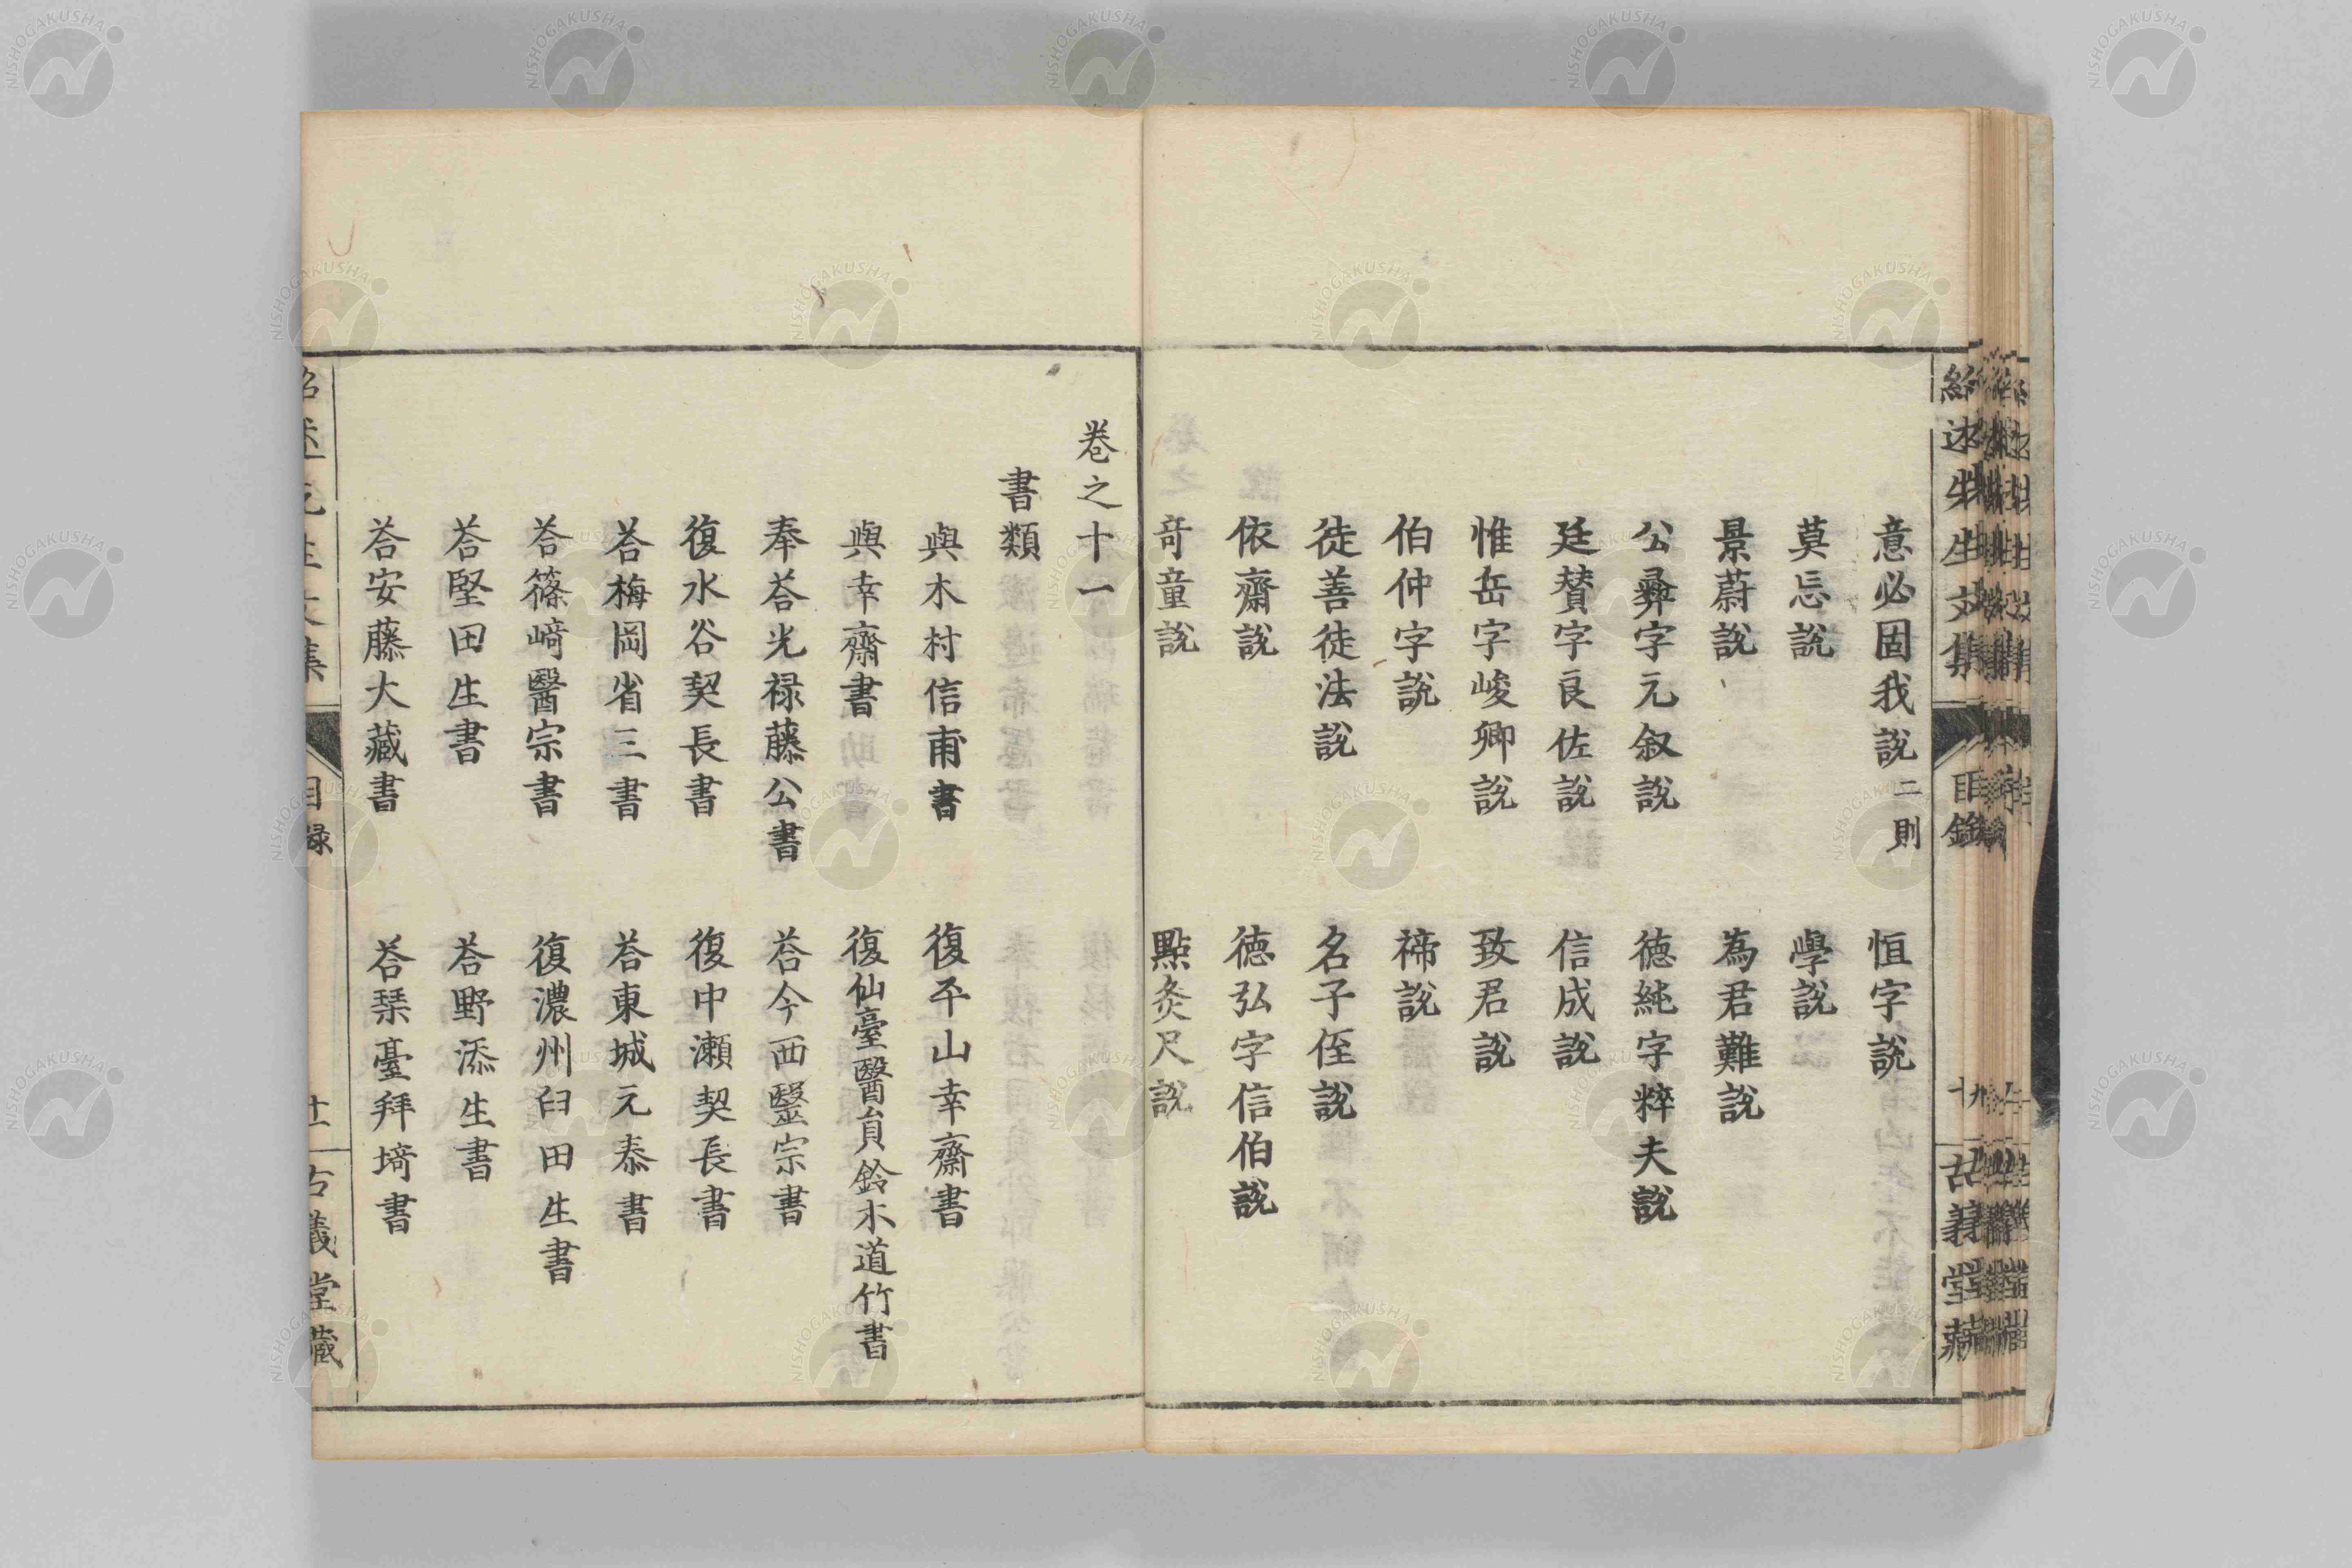 意必固我説二則　恒字説
莫忘説　學説
景蔚説　為君難説
公彝字元叙説　德純字粹夫説
廷賛字良佐説　信成説
惟岳字峻卿説　致君説
伯仲字説　禘説
徒善徒法説　名子侄説
依齋説　德弘字信伯説
奇童説　點灸尺説
卷之十一
書類
與木村信甫書　復平山幸齋書
與幸齋書　復仙臺醫員鈴木道竹書
奉荅光禄藤公書　荅今西醫宗書
復水谷契長書　復中瀬契長書
荅梅岡省三書　荅東城元泰書
荅篠﨑醫宗書　復濃州臼田生書
荅堅田生書　荅野添生書
荅安藤大藏書　荅琹臺拜埼書
紹述先生文集　目錄　古義堂藏
紹述先生文集　目録　十一　古義堂藏
NISHOGAKUSHA